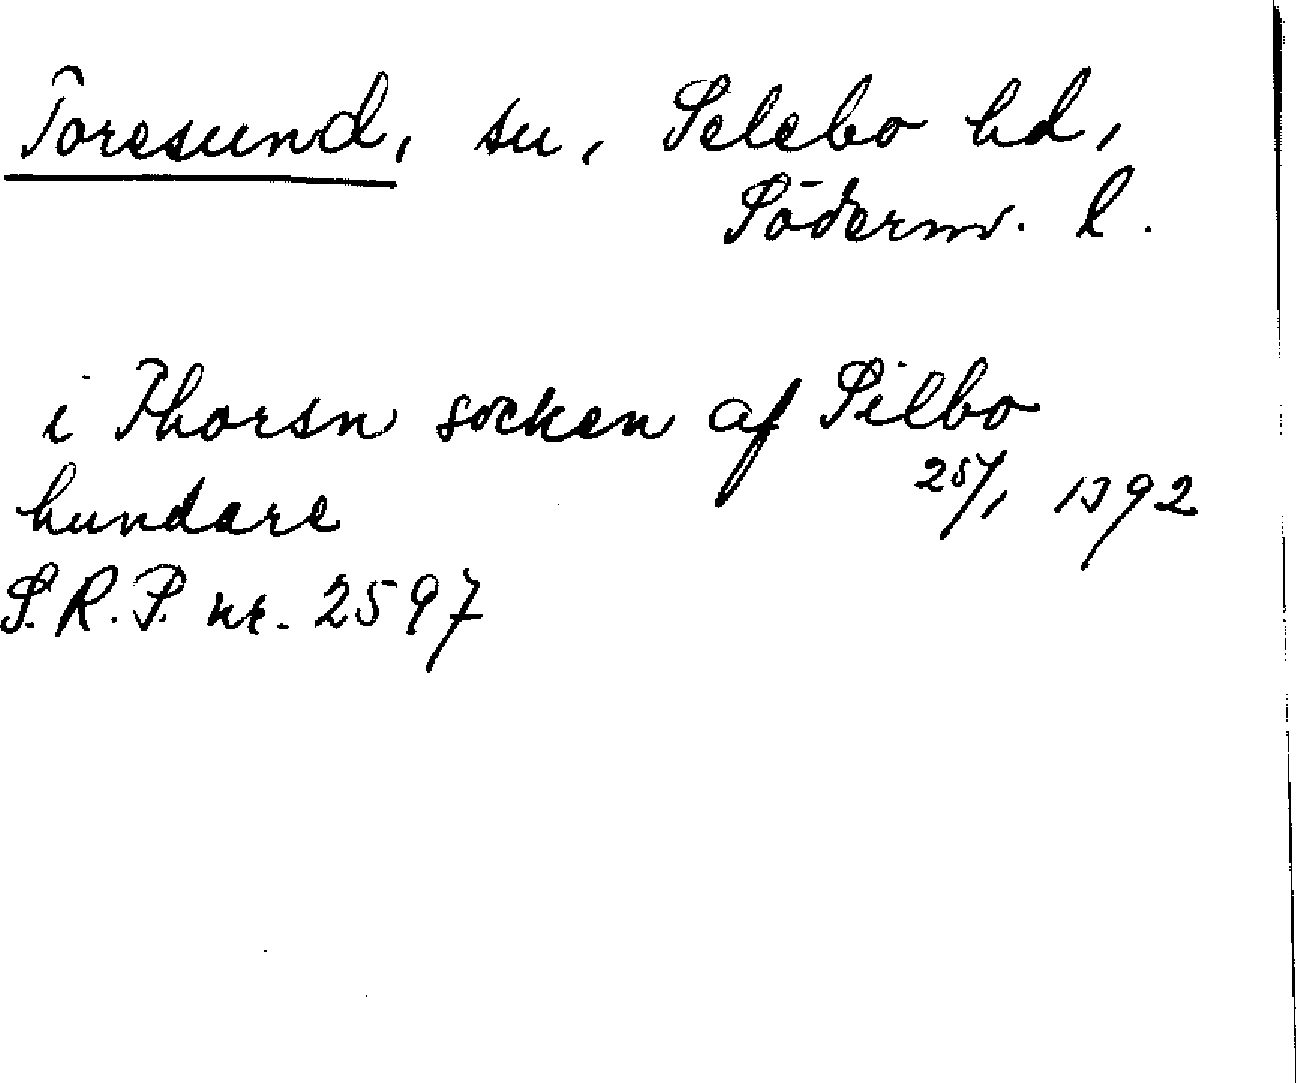 Toresund, sn, Selebo hd,
Söderm. l.
i Thorsn socken af Silbo
hundare 25/1 1392
S.R.P. nr. 2597